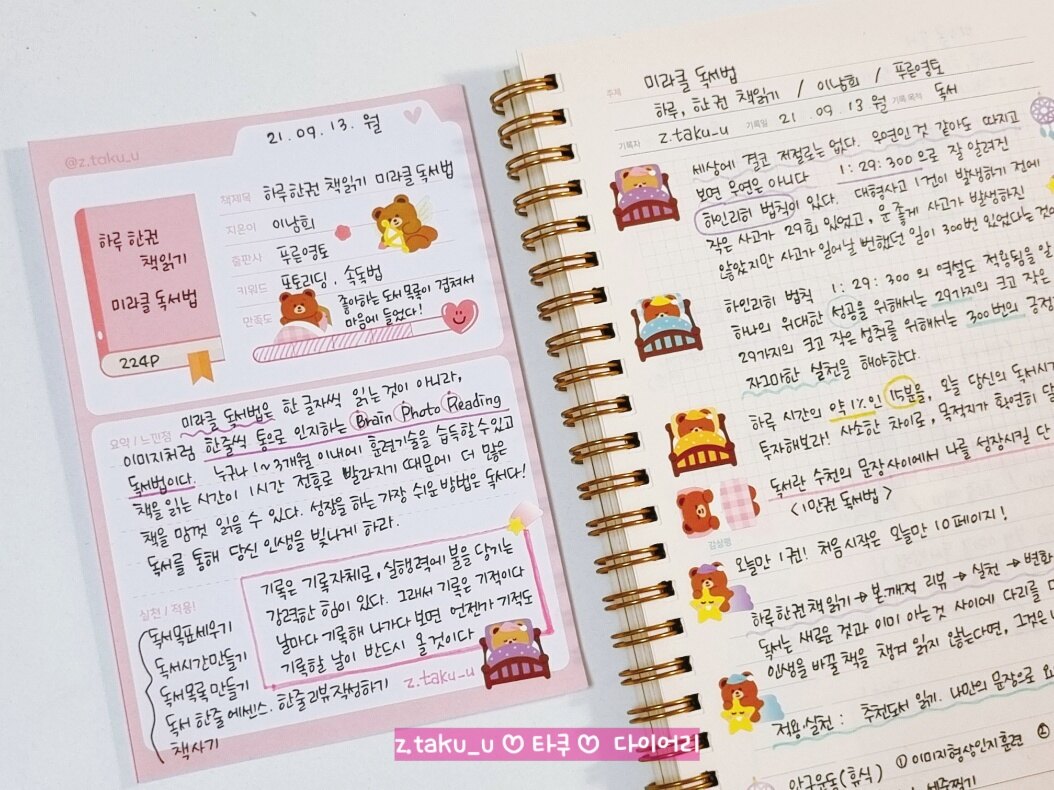 @z.taku_u
21. 09. 13. 월
책제목 하루한권 책읽기 미라클 독서법
지은이 이낭희
출판사 푸른영토
키워드 포토리딩, 속독법
만족도 좋아하는 도서목록이 겹쳐서
마음에 들었다!
하루 한권
책읽기
미라클 독서법
224P
요약 / 느낀점
미라클 독서법은 한 글자씩 읽는것이 아니라,
이미지처럼 한줄씩 통으로 인지하는 Brain Photo Reading
독서법이다. 누구나 1~3개월 이내에 훈련기술을 습득할 수 있고
책을 읽는 시간이 1시간 전후로 빨라지기 때문에 더 많은
책을 맘껏 읽을 수 있다. 성장을 하는 가장 쉬운 방법은 독서다!
독서를 통해 당신 인생을 빛나게 하라.
기록은 기록자체로, 실행력에 불을 당기는
강력한 힘이 있다. 그래서 기록은 기적이다
날마다 기록해 나가다 보면 언젠가 기적도
기록할 날이 반드시 올것이다
실천 / 적용!
독서목표세우기
독서시간만들기
독서목록 만들기
독서 한줄 에센스. 한줄리뷰작성하기
책사기
z.taku_u
주제 미라클 독서법
하루, 한권 책읽기 / 이낭희 / 푸른영토
기록자 z.taku-u 기록일 21. 09. 13 월 기록 목적 독서
세상에 결코 저절로는 없다. 우연인것 같아도 따지고
보면 우연은 아니다 1:29:300 으로 잘 알려진
하인리히 법칙이 있다. 대형사고 1건이 발생하기 전에
작은 사고가 29회 있었고, 운 좋게 사고가 발생하진
않았지만 사고가 일어날 번했던 일이 300번 있었다는것
하인리히 법칙 1:29:300 의 역설도 적용됨을 알
하나의 위대한 성공을 위해서는 29가지의 크고 작은
29가지의 크고 작은 성취를 위해서는 300번의 긍정
자그마한 실천을 해야한다.
하루 시간의 약 1%인 15분을, 오늘 당신의 독서시
투자해보라! 사소한 차이로, 목적지가 확연히 달
독서란 수천의 문장사이에서 나를 성장시킬 단
<1만권 독서법>
감상평
오늘만 1권! 처음시작은 오늘만 10페이지!
하루한권책읽기 → 본깨적 리뷰 → 실천 → 변화
독서는 새로운 것과 이미 아는것 사이에 다리를
인생을 바꿀 책을 챙겨 읽지 않는다면, 그것은
적용·실천 : 추천도서 읽기. 나만의 문장으로
안구운동(휴식) ① 이미지형상인지훈련 ②
z.taku_u ♡ 타쿠 ♡ 다이어리